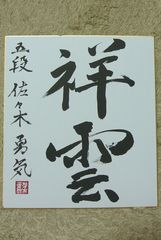 祥雲
五段 佐々木勇気